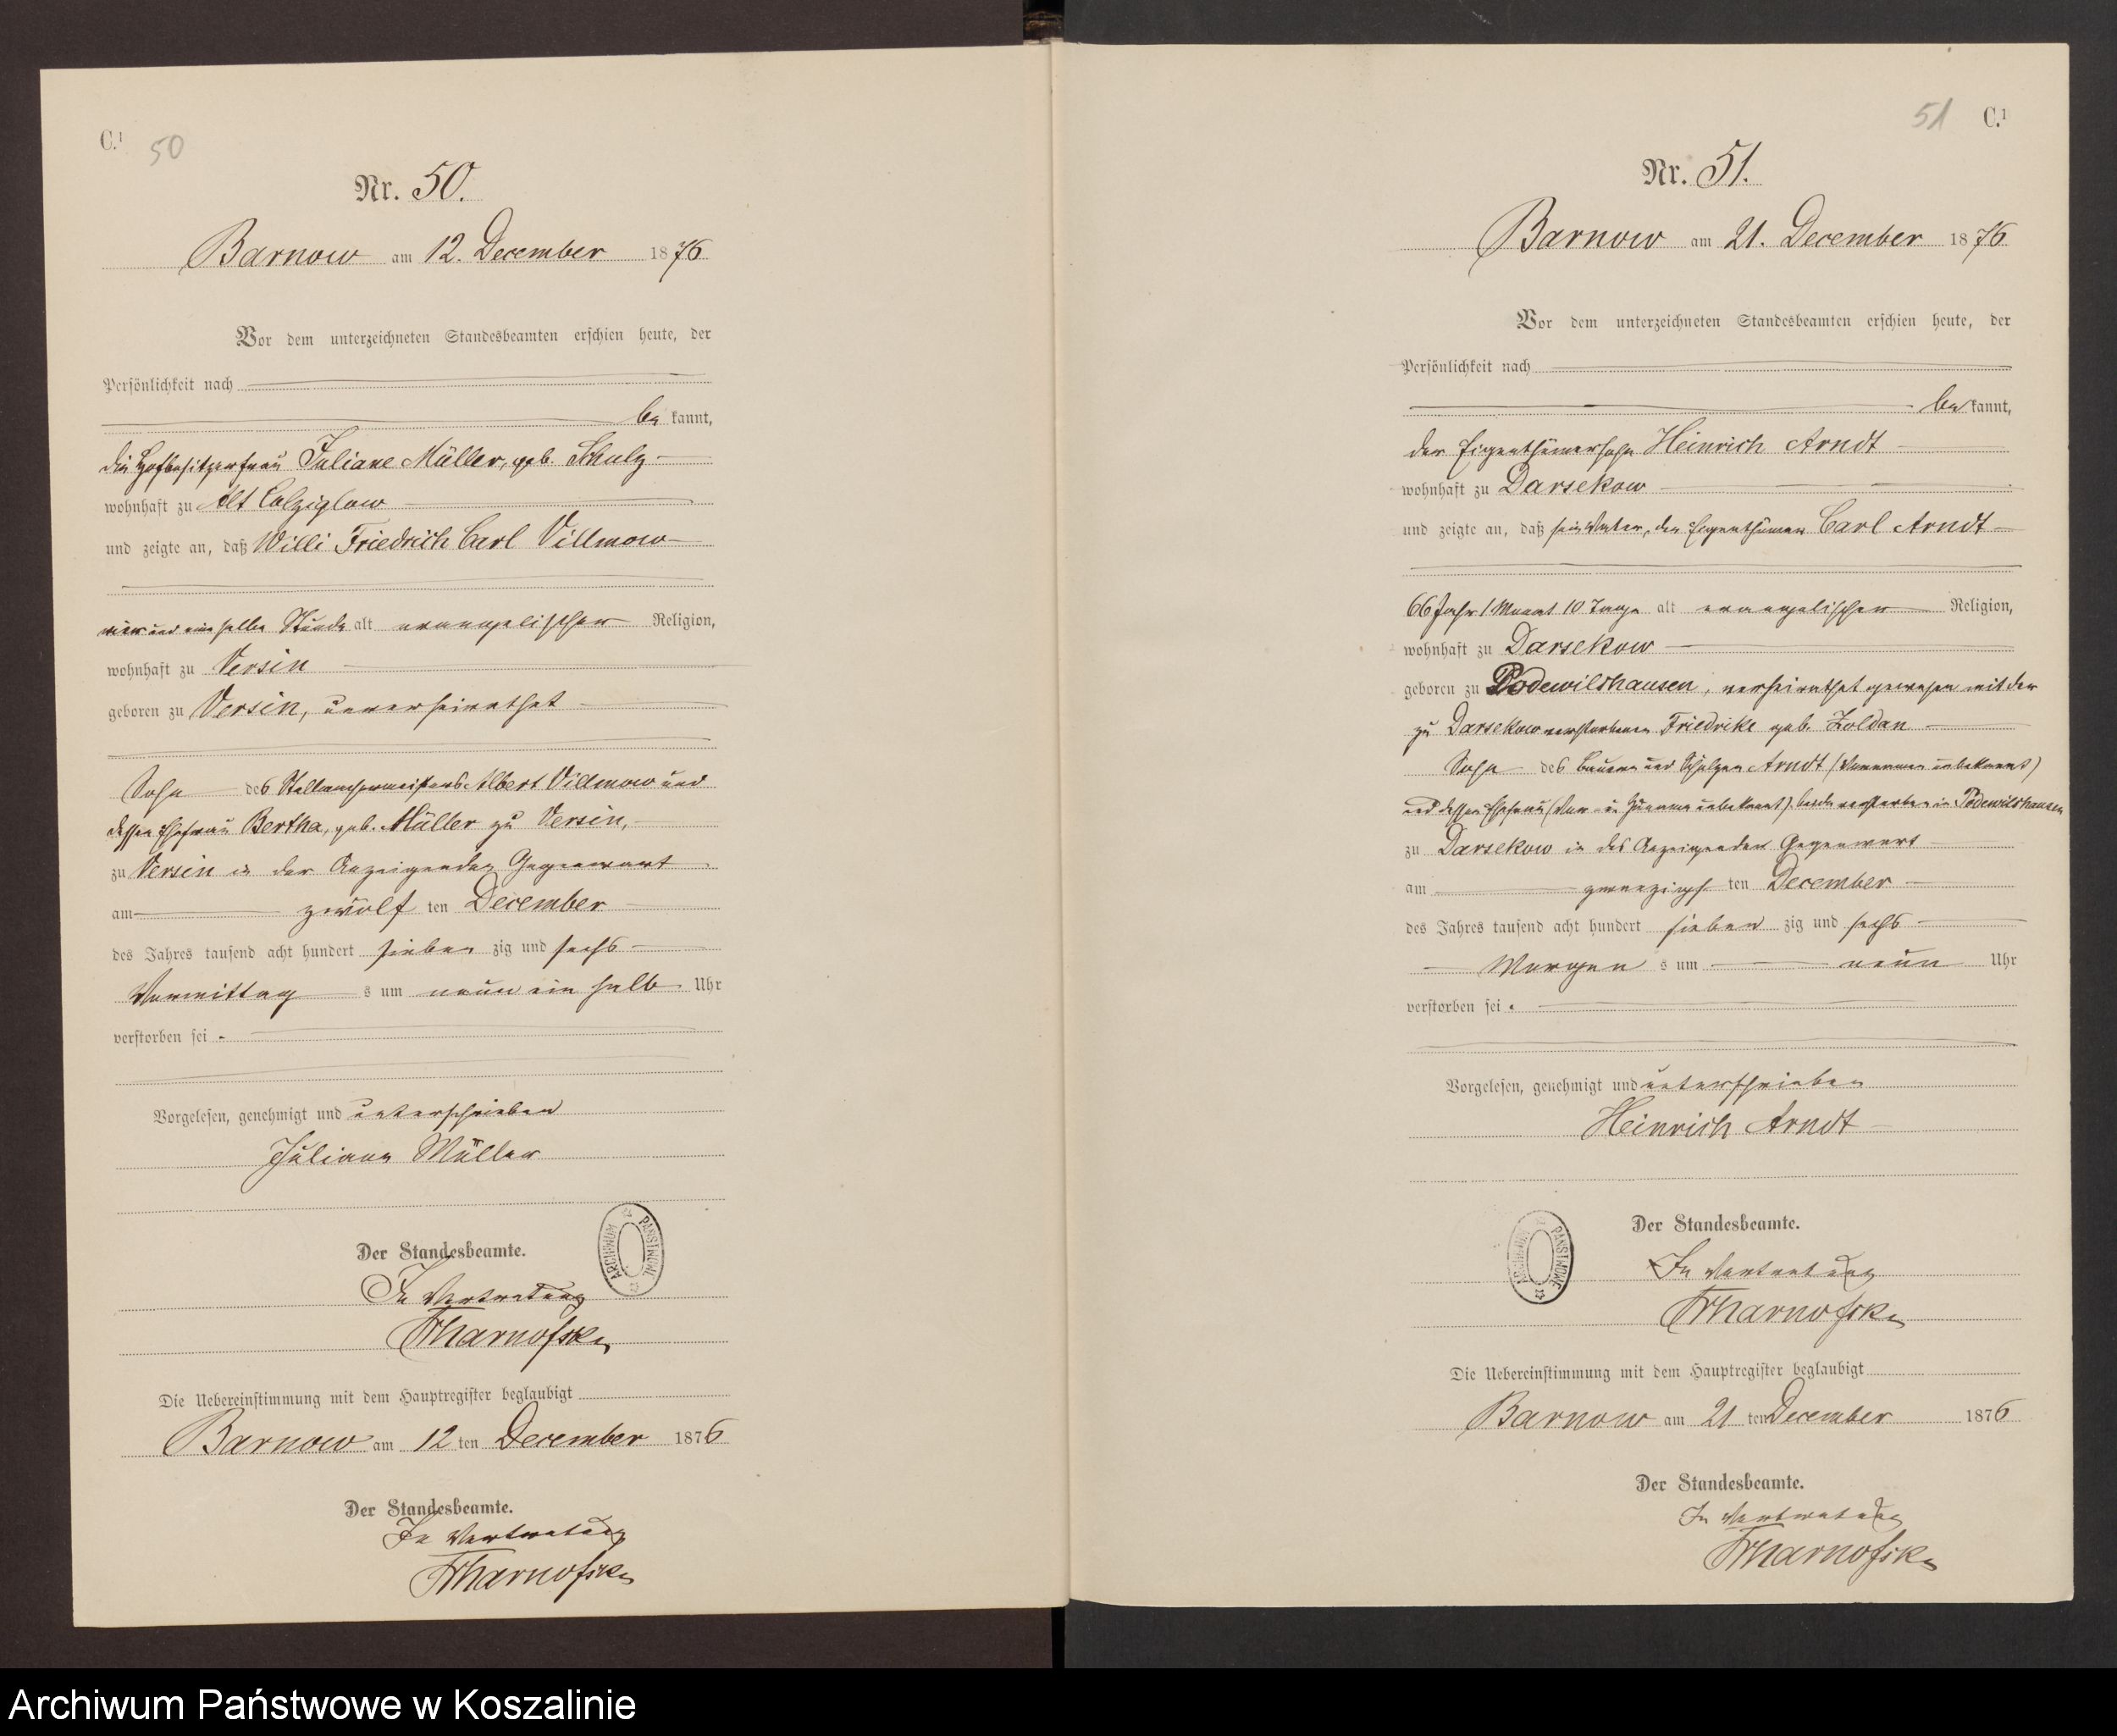 C.¹ 50
Nr. 50.
Barnow am 12. December 1876
Vor dem unterzeichneten Standesbeamten erschien heute, der
Persönlichkeit nach
be kannt,
die Hofbesitzerfrau Juliane Müller, geb. Schulz
wohnhaft zu Alt Colziglow
und zeigte an, daß Willi Friedrich Carl Villmow
vier und eine halbe Stunde alt evangelischer Religion,
wohnhaft zu Versin
geboren zu Versin, unverheirathet
Sohn des Stellmachermeisters Albert Villmow und
dessen Ehefrau Bertha, geb. Müller zu Versin,
zu Versin in der Anzeigenden Gegenwart
am zwölf ten December
des Jahres tausend acht hundert sieben zig und sechs
Vormittag s um neun ein halb Uhr
verstorben sei.
Vorgelesen, genehmigt und unterschrieben
Juliane Müller
ARCHIWUM PAŃSTWOWE
Der Standesbeamte.
In Vertretung
Die Uebereinstimmung mit dem Hauptregister beglaubigt
Barnow am 12 ten December 1876
Der Standesbeamte.
In Vertretung
51 C.¹
Nr. 51.
Barnow am 21. December 1876
Vor dem unterzeichneten Standesbeamten erschien heute, der
Persönlichkeit nach
be kannt,
der Eigenthümersohn Heinrich Arndt
wohnhaft zu Darsekow
und zeigte an, daß sein Vater, der Eigenthümer Carl Arndt
66 Jahr 1 Monat 10 Tage alt evangelischer Religion,
wohnhaft zu Darsekow
geboren zu Podewilshausen, verheirathet gewesen mit der
zu Darsekow verstorbenen Friedrike geb. Zoldan
Sohn des Bauern und Schulzen Arndt (Vornamen unbekannt)
und dessen Ehefrau (Vor- u Zuname unbekannt) beide verstorben in Podewilshausen
zu Darsekow in des Anzeigenden Gegenwart
am zwanzigs ten December
des Jahres tausend acht hundert sieben zig und sechs
Morgen s um neun Uhr
verstorben sei.
Vorgelesen, genehmigt und unterschrieben
Heinrich Arndt
ARCHIWUM PAŃSTWOWE
Der Standesbeamte.
In Vertretung
Die Uebereinstimmung mit dem Hauptregister beglaubigt
Barnow am 21 ten December 1876
Der Standesbeamte.
In Vertretung
Archiwum Państwowe w Koszalinie